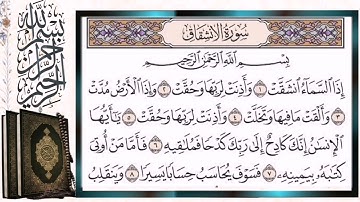 سُورَةُ الانشِقَاقِ
بِسْمِ ٱللَّهِ ٱلرَّحْمَٰنِ ٱلرَّحِيمِ
إِذَا ٱلسَّمَآءُ ٱنشَقَّتْ ١ وَأَذِنَتْ لِرَبِّهَا وَحُقَّتْ ٢ وَإِذَا ٱلْأَرْضُ مُدَّتْ
٣ وَأَلْقَتْ مَا فِيهَا وَتَخَلَّتْ ٤ وَأَذِنَتْ لِرَبِّهَا وَحُقَّتْ ٥ يَٰٓأَيُّهَا
ٱلْإِنسَٰنُ إِنَّكَ كَادِحٌ إِلَىٰ رَبِّكَ كَدْحًا فَمُلَٰقِيهِ ٦ فَأَمَّا مَنْ أُوتِىَ
كِتَٰبَهُۥ بِيَمِينِهِۦ ٧ فَسَوْفَ يُحَاسَبُ حِسَابًا يَسِيرًا ٨ وَيَنقَلِبُ
بسم الله الرحمن الرحيم